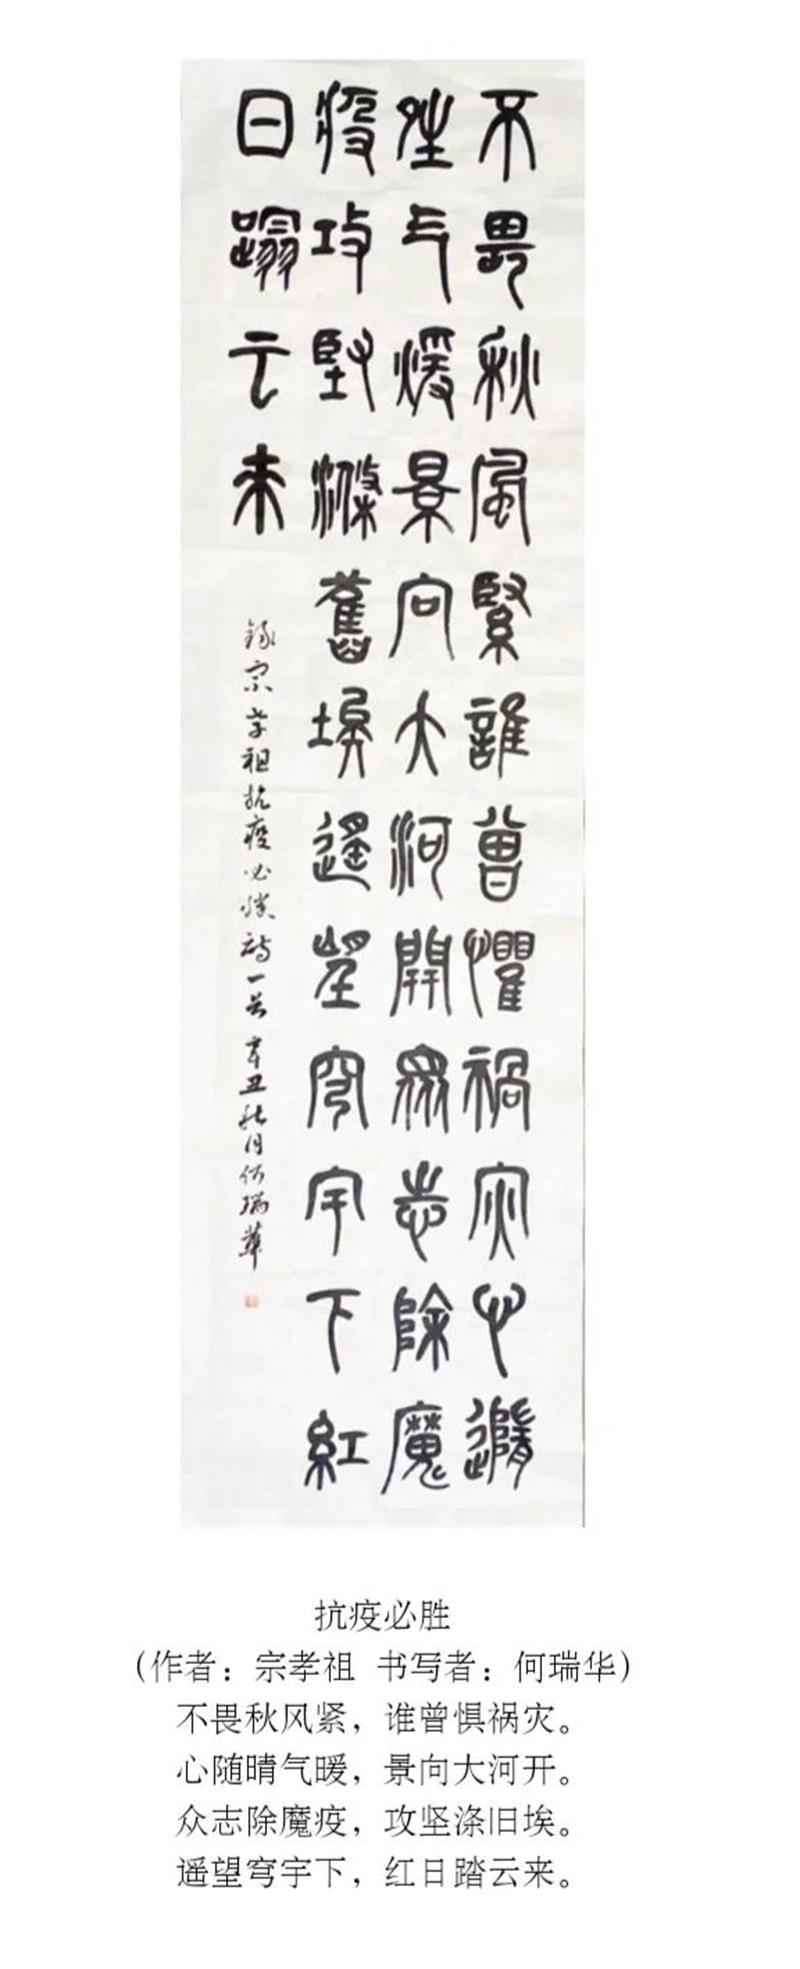 不畏秋風緊誰曾懼禍灾心隨
夝气煖景向大河開眾志除魔
疫攻堅滌舊埃遙望穹宇下紅
日蹋云来
錄宗孝祖抗疫必勝诗一首 辛丑秋月何瑞華
抗疫必胜
（作者：宗孝祖 书写者：何瑞华）
不畏秋风紧，谁曾惧祸灾。
心随晴气暖，景向大河开。
众志除魔疫，攻坚涤旧埃。
遥望穹宇下，红日踏云来。